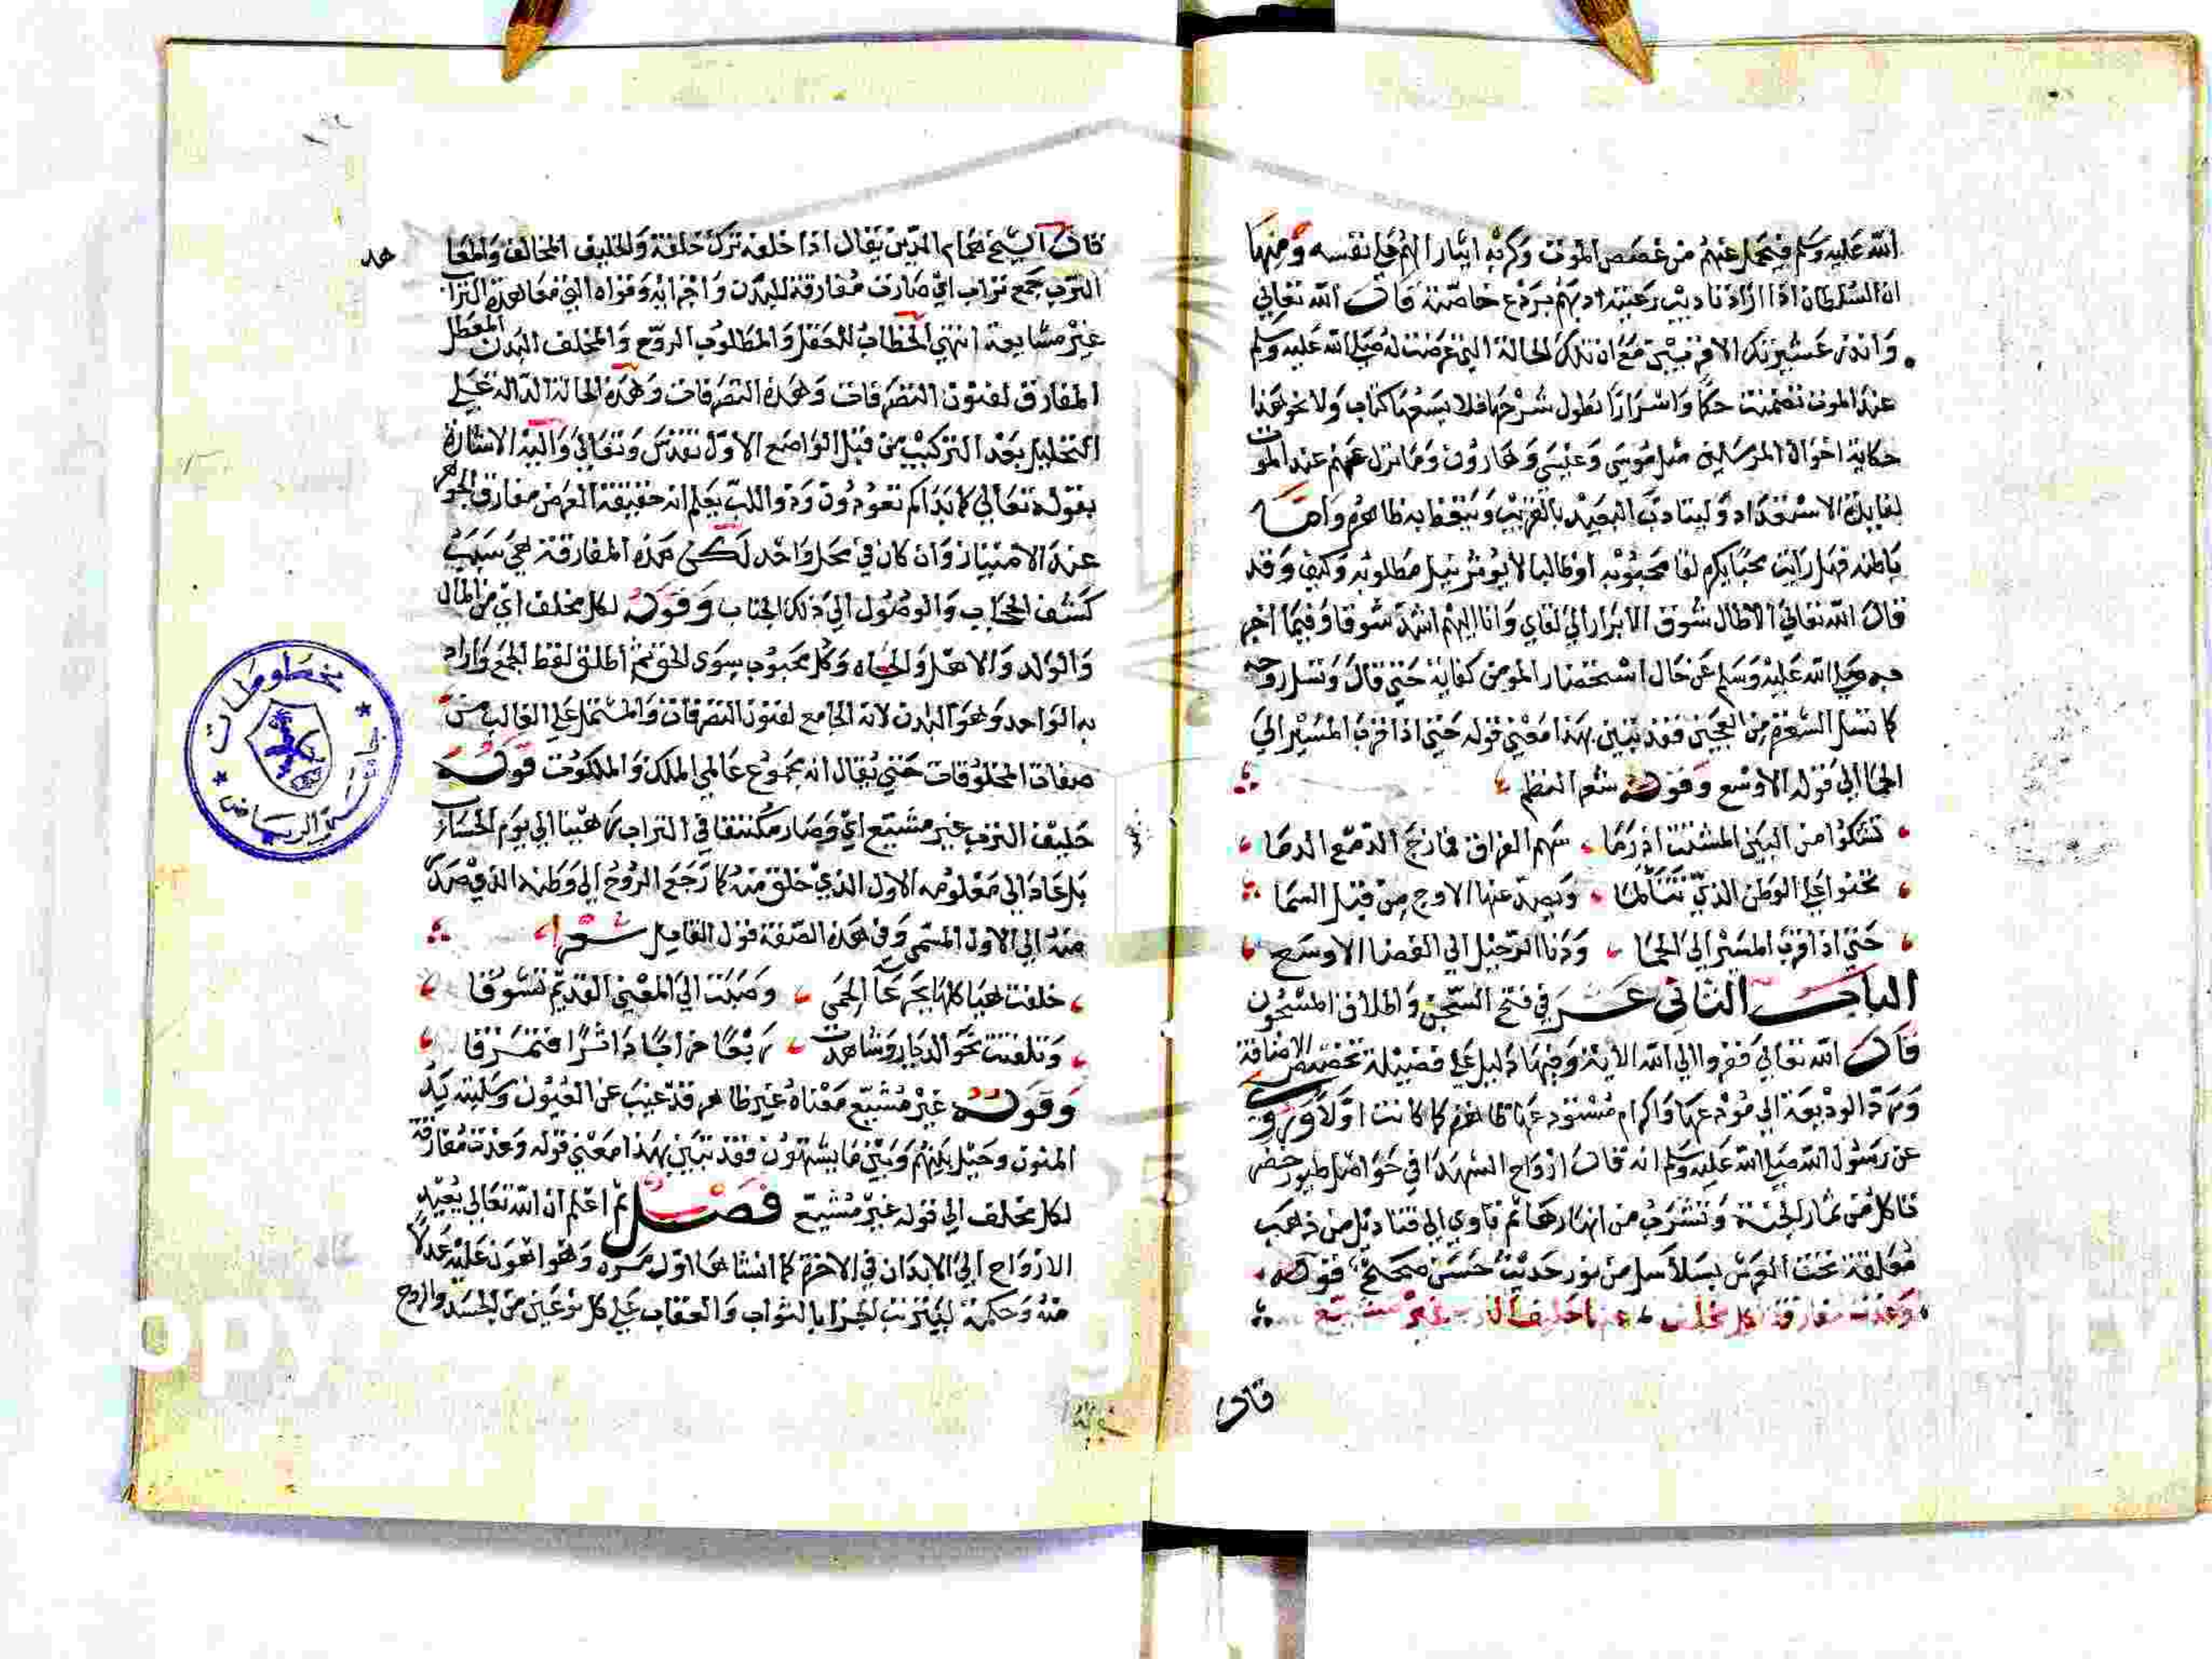 الله عليه وسلم فيتحمل عنهم من غصص الموت وكربه ايثارا لهم على نفسه ومنها
ان السلطان اذا اراد تاديب رعيته ادبهم بردع خاصته قال الله تعالى
وانذر عشيرتك الاقربين مع ان تلك الحالة التي عرضت له صلى الله عليه وسلم
عند الموت تضمنت حكما واسرارا يطول شرحها فلا يسعها كتاب ولا نحو هذا
حكاية احوال المرسلين مثل موسى وعيسى وهارون وما نزل بهم عند الموت
لفايدة الاستعداد وليتادب البعيد بالقريب ويتيقظ به ظاهره واما
باطنه فهل رايت محبا يكره لقا محبوبه او طالبا لا يوثر نيل مطلوبه وكيف وقد
قال الله تعالى الا طال شوق الابرار الى لقاي وانا اليهم اشد شوقا وفيما اخبر
به صلى الله عليه وسلم عن حال استحضار المومن كفاية حتى قال وتسل روحه
كما تسل الشعرة من العجين فقد تبين بهذا معنى قوله حتى اذا قرب المسير الى
الحما الى قوله الاوسع وقوله شعر النظم
تشكوا من البين المشتت اذ رما سهم الفراق فمازج الدمع الدما
تحنوا على الوطن الذي تتألما ويصد عنها الاوج من قبل السما
حتى اذا قرب المسير الى الحما ودنا الرحيل الى الفضا الاوسع
الباب الثاني عشر في فتح السجن واطلاق المسجون
قال الله تعالى ففروا الى الله الاية وفيها دليل على فضيلة تخصيص الاضافة
ورد الوديعة الى مودعها واكرام مستودعها ظاهرة كما كانت اولا وروي
عن رسول الله صلى الله عليه وسلم انه قال ارواح الشهدا في حواصل طيور خضر
تاكل من ثمار الجنة وتشرب من انهارها ثم تاوي الى قناديل من ذهب
معلقة تحت العرش بسلاسل من نور حديث حسن صحيح قوله
وغدت مفارقة لكل مخلف عنها حليف الترب غير مشيع
قال
قال الشيخ همام الدين يقال اذا خلفه ترك خلفه والحليف المحالف والمعاهد
الترب جمع تراب اي صارت مفارقة للبدن واجزائه وقواه التي معاهدة التراب
غير مشايعة انتهى الخطاب للعقل والمطلوب الروح والمخلف البدن المعطل
المفارق لفنون التصرفات وهذه التصرفات وهذه الحالة الدالة على
التحليل بعد التركيب من قبل الواضع الاول تقدس وتعالى واليه الاشارة
بقوله تعالى كما بدأكم تعودون وذو اللب يعلم انه حقيقة العرض مفارق الجوهر
عند الامتياز وان كان في محل واحد لكن هذه المفارقة هي سبب
كشف الحجاب والوصول الى ذلك الجناب وقوله لكل مخلف اي من المال
والولد والاهل والجاه وكل محبوب سوى الحق ثم اطلق لفظ الجمع واراد
به الواحد وهو البدن لانه الجامع لفنون التصرفات والمشتمل على الغالب من
صفات المخلوقات حتى يقال انه مجموع عالمي الملك والملكوت قوله
حليف الترب غير مشيع اي وصار مكتنفا في التراب رهينا الى يوم الحساب
بل عاد الى معلومه الاول الذي خلق منه كما رجع الروح الى وطنه الذي صدر
منه الى الاول المسمى وفي هذه الصفة قول القايل شعرا
خلفت محيا كلها بجرعا الحمى وصبت الى المغنى القديم تشوقا
وتلفتت نحو الديار وشاهدت ربعا خرابا داثرا فتمزقا
وقوله غير مشيع معناه غير ظاهر قد غيب عن العيون وسلبته يد
المنون وحيل بينهم وبين ما يشتهون فقد تبين بهذا معنى قوله وغدت مفارقة
لكل مخلف الى قوله غير مشيع فصل ثم اعلم ان الله تعالى يعيد
الارواح الى الابدان في الاخرة كما انشاها اول مرة وهو اهون عليه عدلا
منه وحكمة ليترتب الجزا بالثواب والعقاب على كل نوعين من الجسد والروح
مخطوطات
جامعة الرياض